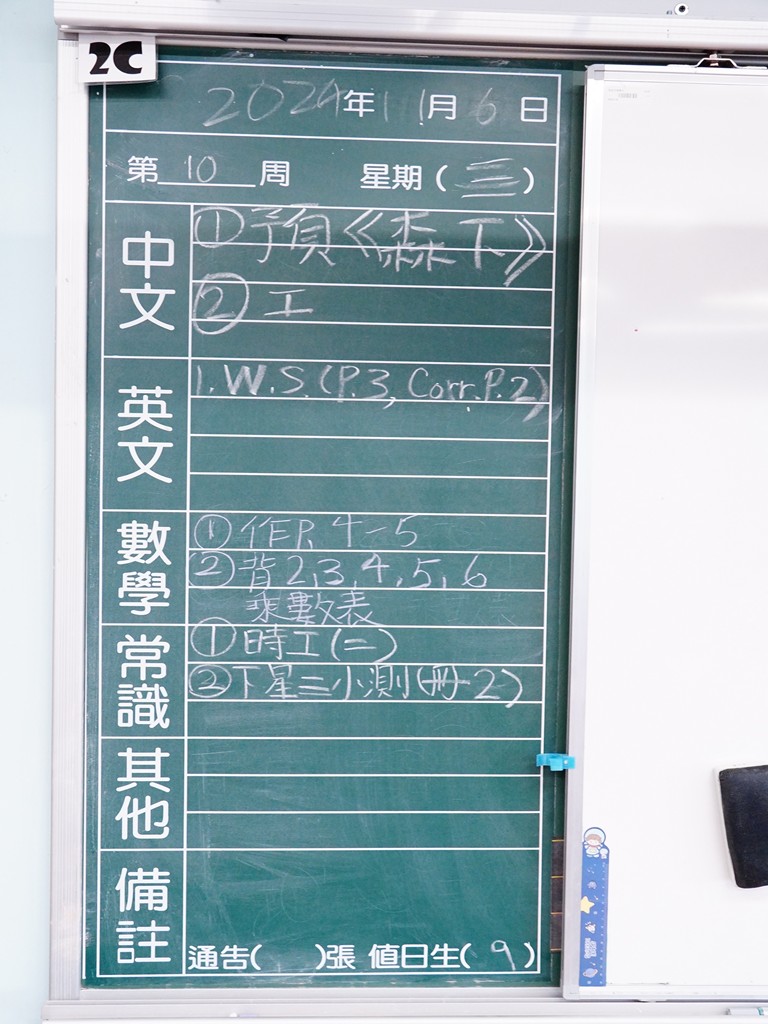 2C
2024年11月6日
第10周 星期(三)
中文
①預《森下》
②工
英文
1. W.S. (P.3, Corr. P.2)
數學
①作P. 4-5
②背2,3,4,5,6
乘數表
常識
①時工(二)
②下星三小測(冊2)
其他
備註
通告( )張 值日生(9)